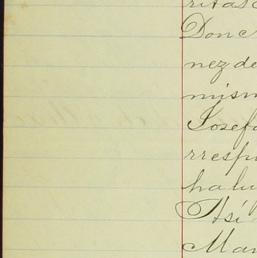 ritasc
Donc
nez de
mism
Josefa
rresp
ha lu
Así
Man